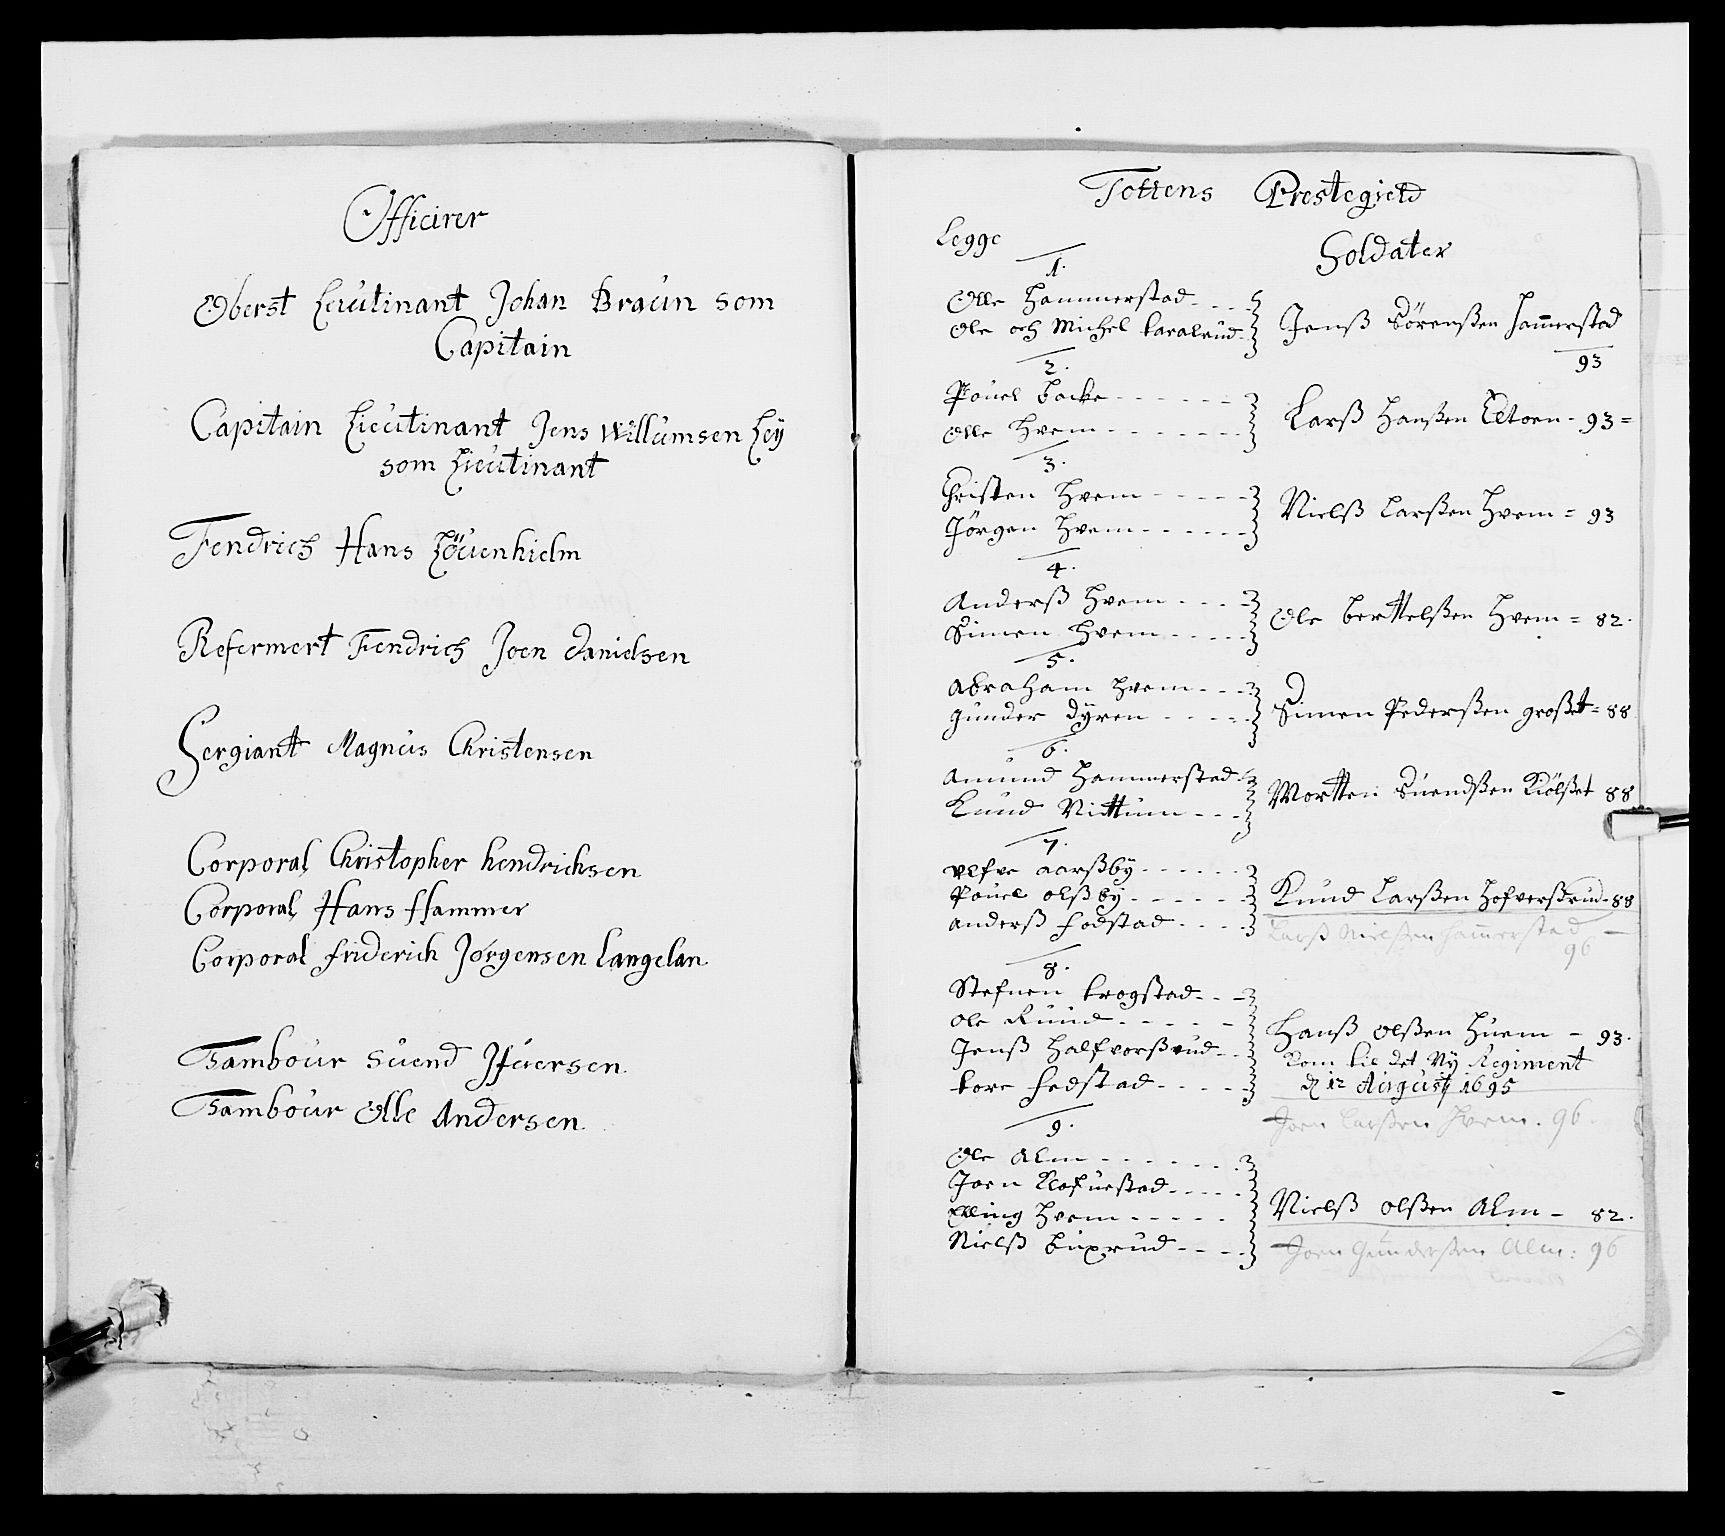 Officirer
Oberst Leutinant Johan Braun som
Capitain
Capitain Lieutinant Jens Willumsen Ley
som Lieutinant
Fendrich Hans Löuenhielm
Refermert Fendrich Joen Danielsen
Sergiant Magnus Christensen
Corporal Christopher Hendrichsen
Corporal Hans Hammer
Corporal friderich Jørgensen Langelan
Tambour Suend Jfuersen
Tambour Olle Andersen
Tottens Prestegield
Legge
Soldater
1.
Olle Hammerstad
Ole och Michel karalrud
Jenß Sörenßen Hamerstad
93
2.
Pouel backe
Olle Hvem
Larß Hanßen Eltoen - 93=
3.
Christen Hvem
Jörgen Hvem
Nielß Larßen Hvem = 93
4.
Anderß Hvem
Simen Hvem
Ole Berttelßen Hvem = 82.
5.
Abraham Hvem
gunder dyren
Simen Pederßen großet = 88
6.
Amund Hammerstad
Knud Vittum
Mortten Suendßen Kiölßet 88
7.
vlfve aarßby
Pouel olßby
anderß fodstad
Knud Larßen Hofverßrud - 88
Larß Nielßen Hamerstad
96
8.
Stefnen krogstad
Ole Rund
Jenß Halfvorßrud
tore fedstad
Hanß olßen Huem - 93.
Kom til det Ny Regiment
d 12 August 1695
Joen Larßen Hvem. 96.
9.
Ole Alm
Joen Klofuestad
Elling Hvem
Nielß buxrud
Nielß olßen Alm - 82.
Joen Gunderßen Alm: 96